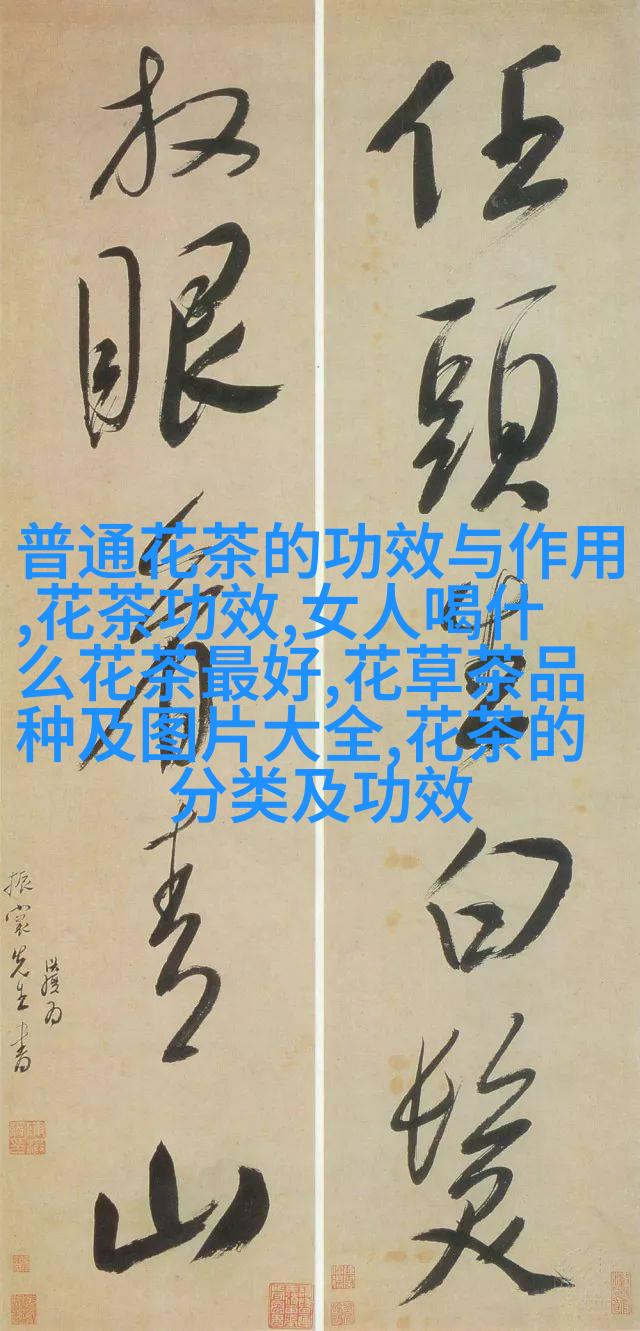 任頭生白髮
放眼看青山
先生書
普通花茶的功效与作用
,花茶功效,女人喝什
么花茶最好,花草茶品
种及图片大全,花茶的
分类及功效